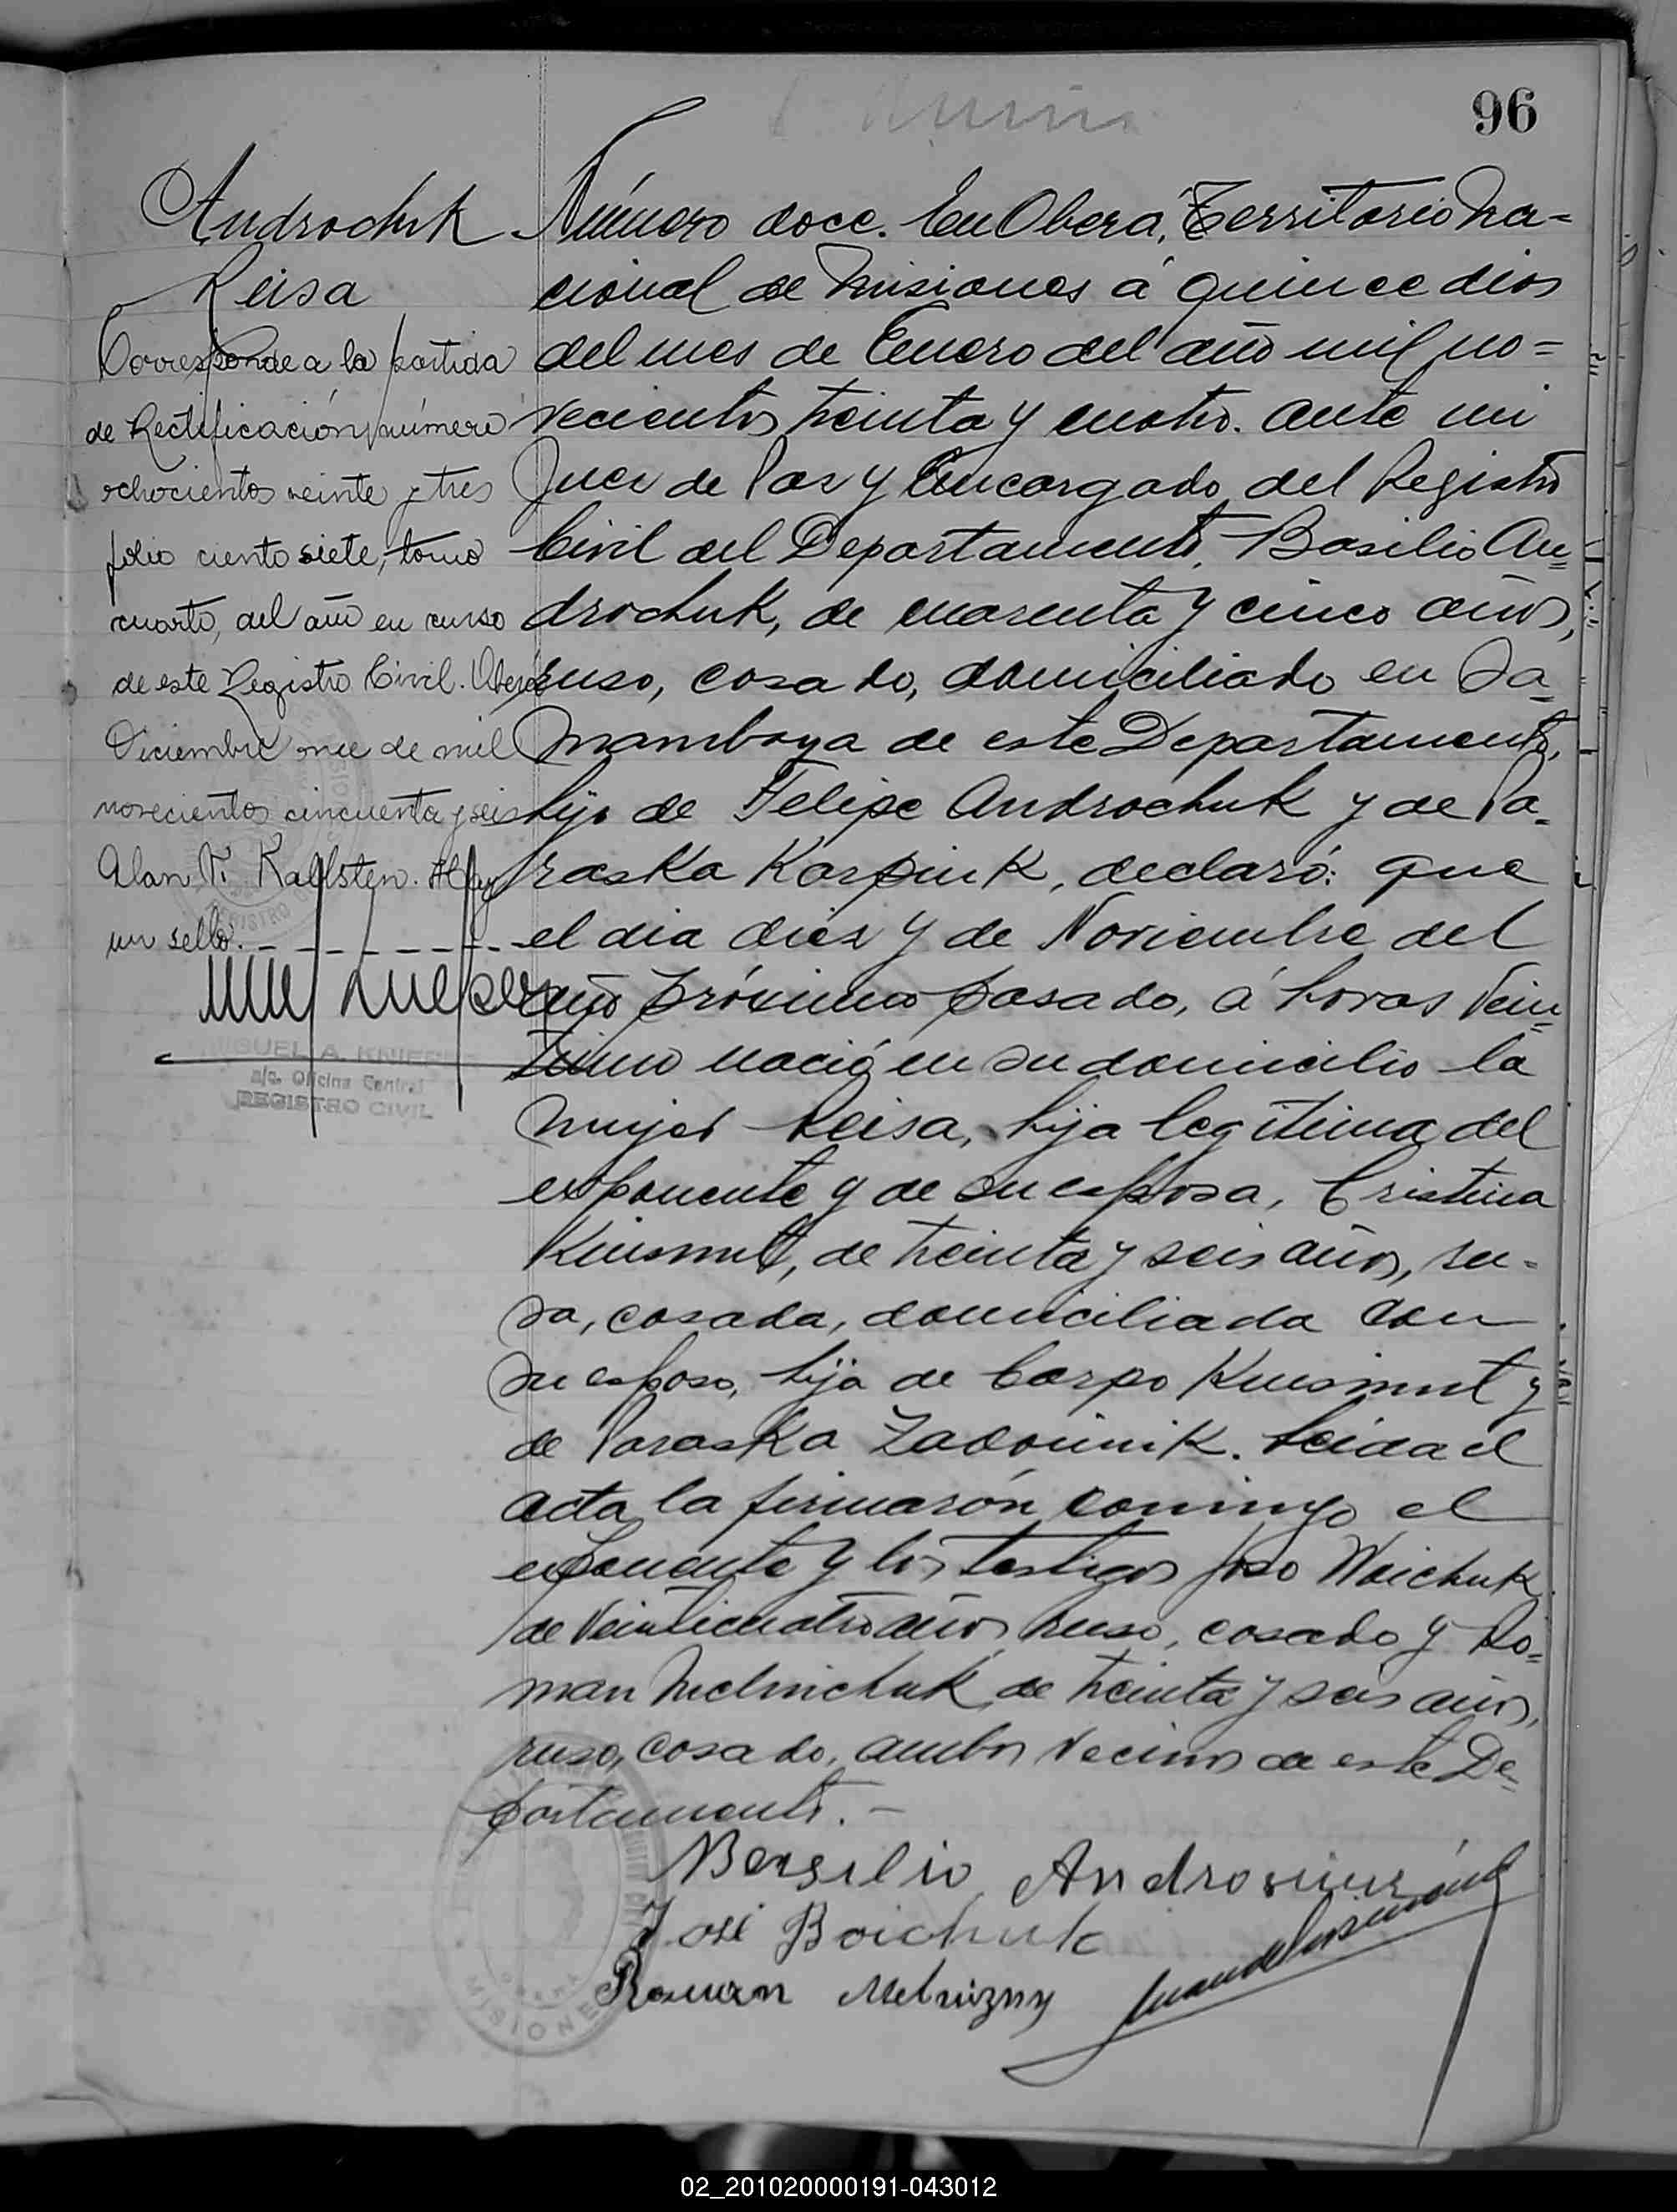 96
Androchuk
Reisa
Corresponde a la partida
de Rectificación número
ochocientos veinte y tres
folio ciento siete, tomo
cuarto, del año en curso
de este Registro Civil. Oberá
Diciembre once de mil
novecientos cincuenta y seis
Alan V. Kallsten. Hay
un sello.
MIGUEL A. KNIEPER
a/c. Oficina Central
REGISTRO CIVIL
Número doce. En Oberá, Territorio Na=
cional de Misiones á quince dias
del mes de Enero del año mil no=
vecientos treinta y cuatro. ante mi
Juez de Paz y Encargado del Registro
Civil del Departamento, Basilio An=
drochuk, de cuarenta y cinco años,
ruso, casado, domiciliado en Ja=
mamboya de este Departamento,
hijo de Felipe Androchuk y de Pa=
raska Karpiuk, declaró: que
el dia diez y de Noviembre del
año próximo pasado, á horas Vein=
tiuno nació en su domicilio la
mujer Reisa, hija legítima del
exponente y de su esposa, Cristina
Kusmut, de treinta y seis años, ru=
sa, casada, domiciliada con
su esposo, hija de Carpo Kusmut y
de Paraska Zadoinik. Leida el
acta la firmarón conmigo el
exponente y los testigos José Woichuk
de Veinticuatro años, ruso, casado y Ro=
man Melnichuk de treinta y seis años,
ruso, casado, ambos vecinos de este De=
partamento. -
José Boichuk
Roman
MISIONES